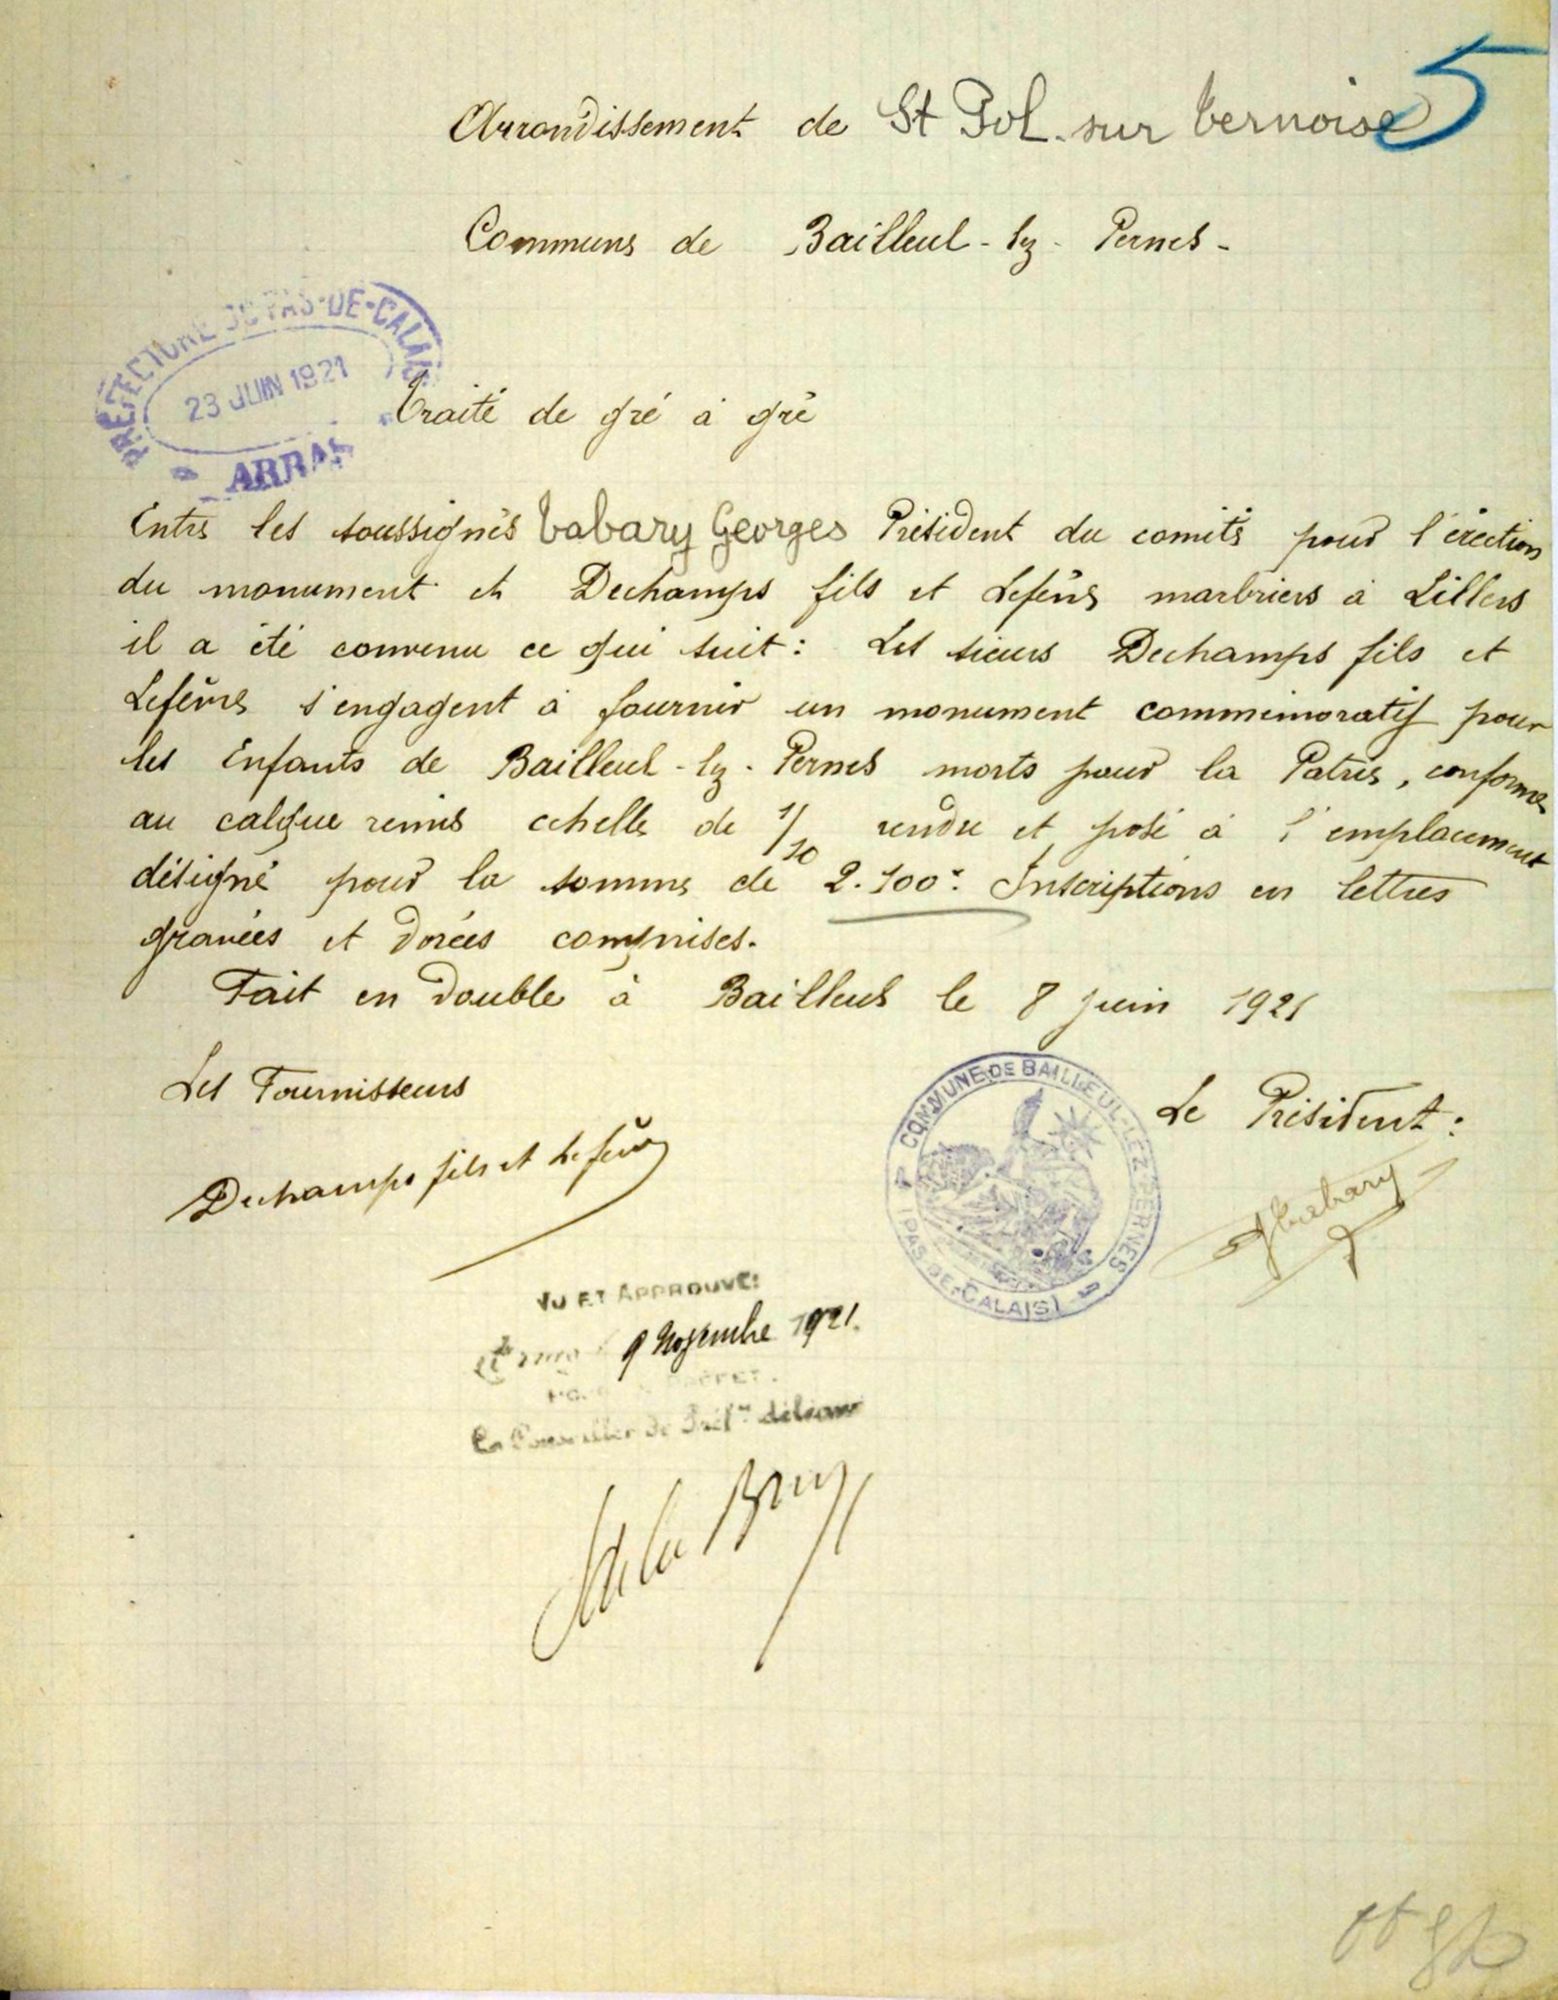 5
Arrondissement de St Pol-sur Ternoise
Commune de Bailleul-lez-Pernes-
PRÉFECTURE DU PAS-DE-CALAIS
23 JUIN 1921
ARRAS
Traité de gré à gré
Entre les soussignés Tabary Georges Président du comité pour l'érection
du monument et Dechamps fils et Lefèvre marbriers à Lillers
il a été convenu ce qui suit : Les sieurs Dechamps fils et
Lefèvre s'engagent à fournir un monument commémoratif pour
les Enfants de Bailleul-lez-Pernes morts pour la Patrie, conforme
au calque remis échelle de 1/10 rendu et posé à l'emplacement
désigné pour la somme de 2.100f. Inscriptions en lettres
gravées et dorées comprises.
Fait en double à Bailleul le 8 juin 1921
Les Fournisseurs
Le Président :
Dechamps fils et Lefèvre
COMMUNE DE BAILLEUL-LEZ-PERNES
(PAS-DE-CALAIS)
GTabary
VU ET APPROUVÉ:
9 Novembre 1921.
POUR LE PRÉFET.
Le Conseiller de Préf.re délégué